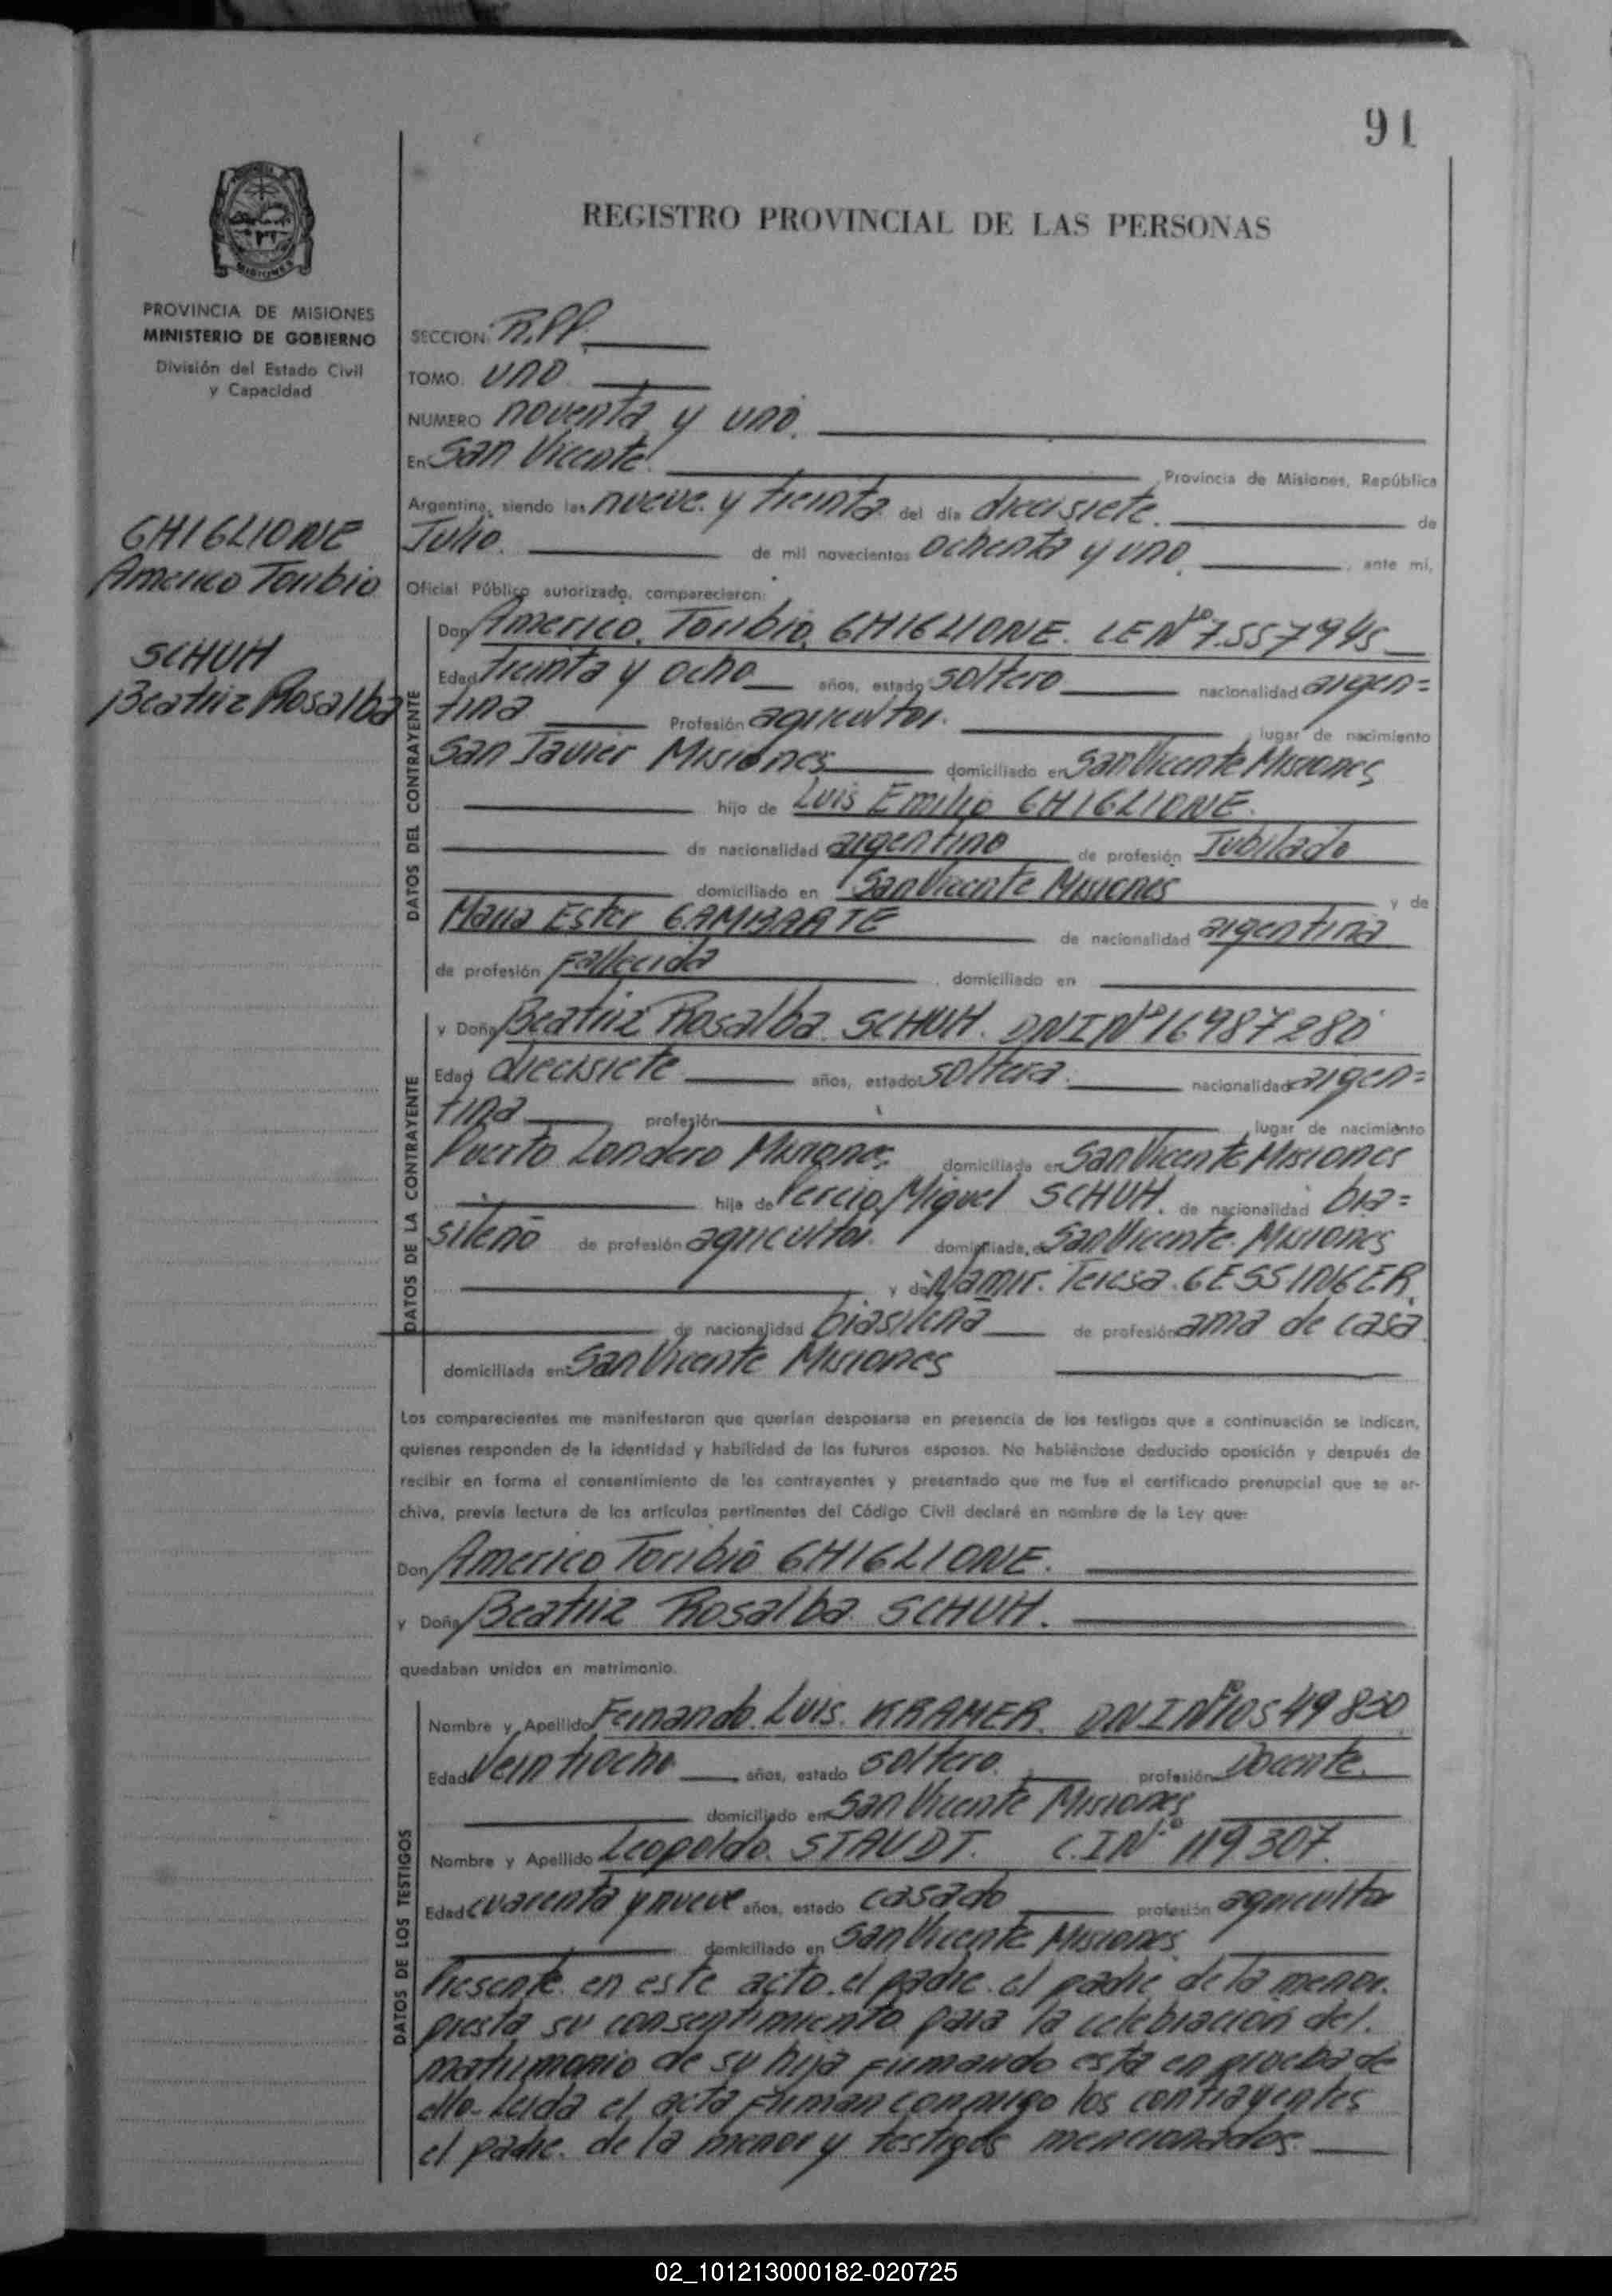 91
PROVINCIA DE MISIONES
MINISTERIO DE GOBIERNO
División del Estado Civil
y Capacidad
REGISTRO PROVINCIAL DE LAS PERSONAS
SECCION: R.PP.
TOMO: UNO
NUMERO noventa y uno.
En San Vicente. Provincia de Misiones, República
Argentina, siendo las nueve y treinta del día diecisiete. de
Julio. de mil novecientos ochenta y uno. ante mí,
Oficial Público autorizado, comparecieron:
GHIGLIONE
Americo Toribio
SCHUH
Beatriz Rosalba
DATOS DEL CONTRAYENTE
Don Americo, Toribio, GHIGLIONE. LE Nº 7.557945
Edad treinta y ocho años, estado soltero nacionalidad argen=
tina Profesión agricultor. lugar de nacimiento
San Javier Misiones domiciliado en San Vicente Misiones
hijo de Luis Emilio GHIGLIONE.
de nacionalidad argentino de profesión Jubilado
domiciliado en San Vicente Misiones y de
Maria Ester GAMBARTE de nacionalidad argentina
de profesión Fallecida, domiciliado en
DATOS DE LA CONTRAYENTE
y Doña Beatriz Rosalba SCHUH. DNI Nº 16987280
Edad diecisiete años, estado soltera. nacionalidad argen=
tina profesión lugar de nacimiento
Puerto Londero Misiones domiciliada en San Vicente Misiones
hija de Percio Miguel SCHUH. de nacionalidad bra=
sileño de profesión agricultor. domiciliada, e San Vicente Misiones
y de Namir. Teresa. GESSINGER.
de nacionalidad brasileña de profesión ama de casa
domiciliada en: San Vicente Misiones
Los comparecientes me manifestaron que querían desposarse en presencia de los testigos que a continuación se indican,
quienes responden de la identidad y habilidad de los futuros esposos. No habiéndose deducido oposición y después de
recibir en forma el consentimiento de los contrayentes y presentado que me fue el certificado prenupcial que se ar-
chiva, previa lectura de los artículos pertinentes del Código Civil declaré en nombre de la Ley que:
Don Americo Toribio GHIGLIONE.
y Doña Beatriz Rosalba SCHUH.
quedaban unidos en matrimonio.
DATOS DE LOS TESTIGOS
Nombre y Apellido Fernando. Luis. KRAMER. DNI Nº 10549830
Edad Veintiocho años, estado soltero. profesión Docente.
domiciliado en San Vicente Misiones
Nombre y Apellido Leopoldo. STAUDT. C.I Nº 119307.
Edad cuarenta y nueve años, estado casado profesión agricultor
domiciliado en San Vicente Misiones
Presente en este acto. el padre. el padre de la menor.
presta su consentimiento para la celebracion del.
matrimonio de su hija firmando esta en prueba de
ello- Leida el acta firman conmigo los contrayentes
el padre. de la menor y testigos mencionados.
02_101213000182-020725